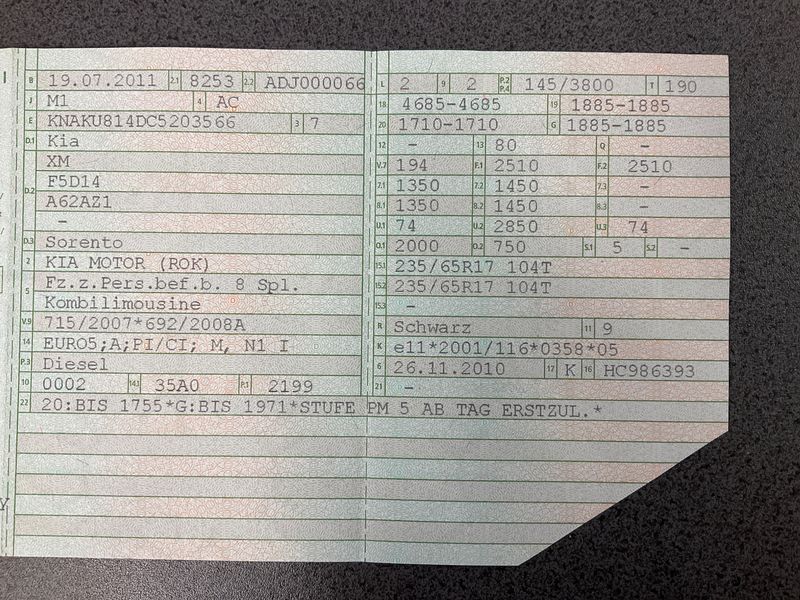 B 19.07.2011 2.1 8253 2.2 ADJ000066 L 2 9 2 P.2 P.4 145/3800 T 190
J M1 4 AC 18 4685-4685 19 1885-1885
E KNAKU814DC5203566 3 7 20 1710-1710 G 1885-1885
D.1 Kia 12 - 13 80 Q -
XM V.7 194 F.1 2510 F.2 2510
D.2 F5D14 7.1 1350 7.2 1450 7.3 -
A62AZ1 8.1 1350 8.2 1450 8.3 -
- U.1 74 U.2 2850 U.3 74
D.3 Sorento O.1 2000 O.2 750 S.1 5 S.2 -
2 KIA MOTOR (ROK) 15.1 235/65R17 104T
5 Fz.z.Pers.bef.b. 8 Spl. 15.2 235/65R17 104T
Kombilimousine 15.3 -
V.9 715/2007*692/2008A R Schwarz 11 9
14 EURO5;A;PI/CI; M, N1 I K e11*2001/116*0358*05
P.3 Diesel 6 26.11.2010 17 K 16 HC986393
10 0002 14.1 35A0 P.1 2199 21 -
22 20:BIS 1755*G:BIS 1971*STUFE PM 5 AB TAG ERSTZUL.*